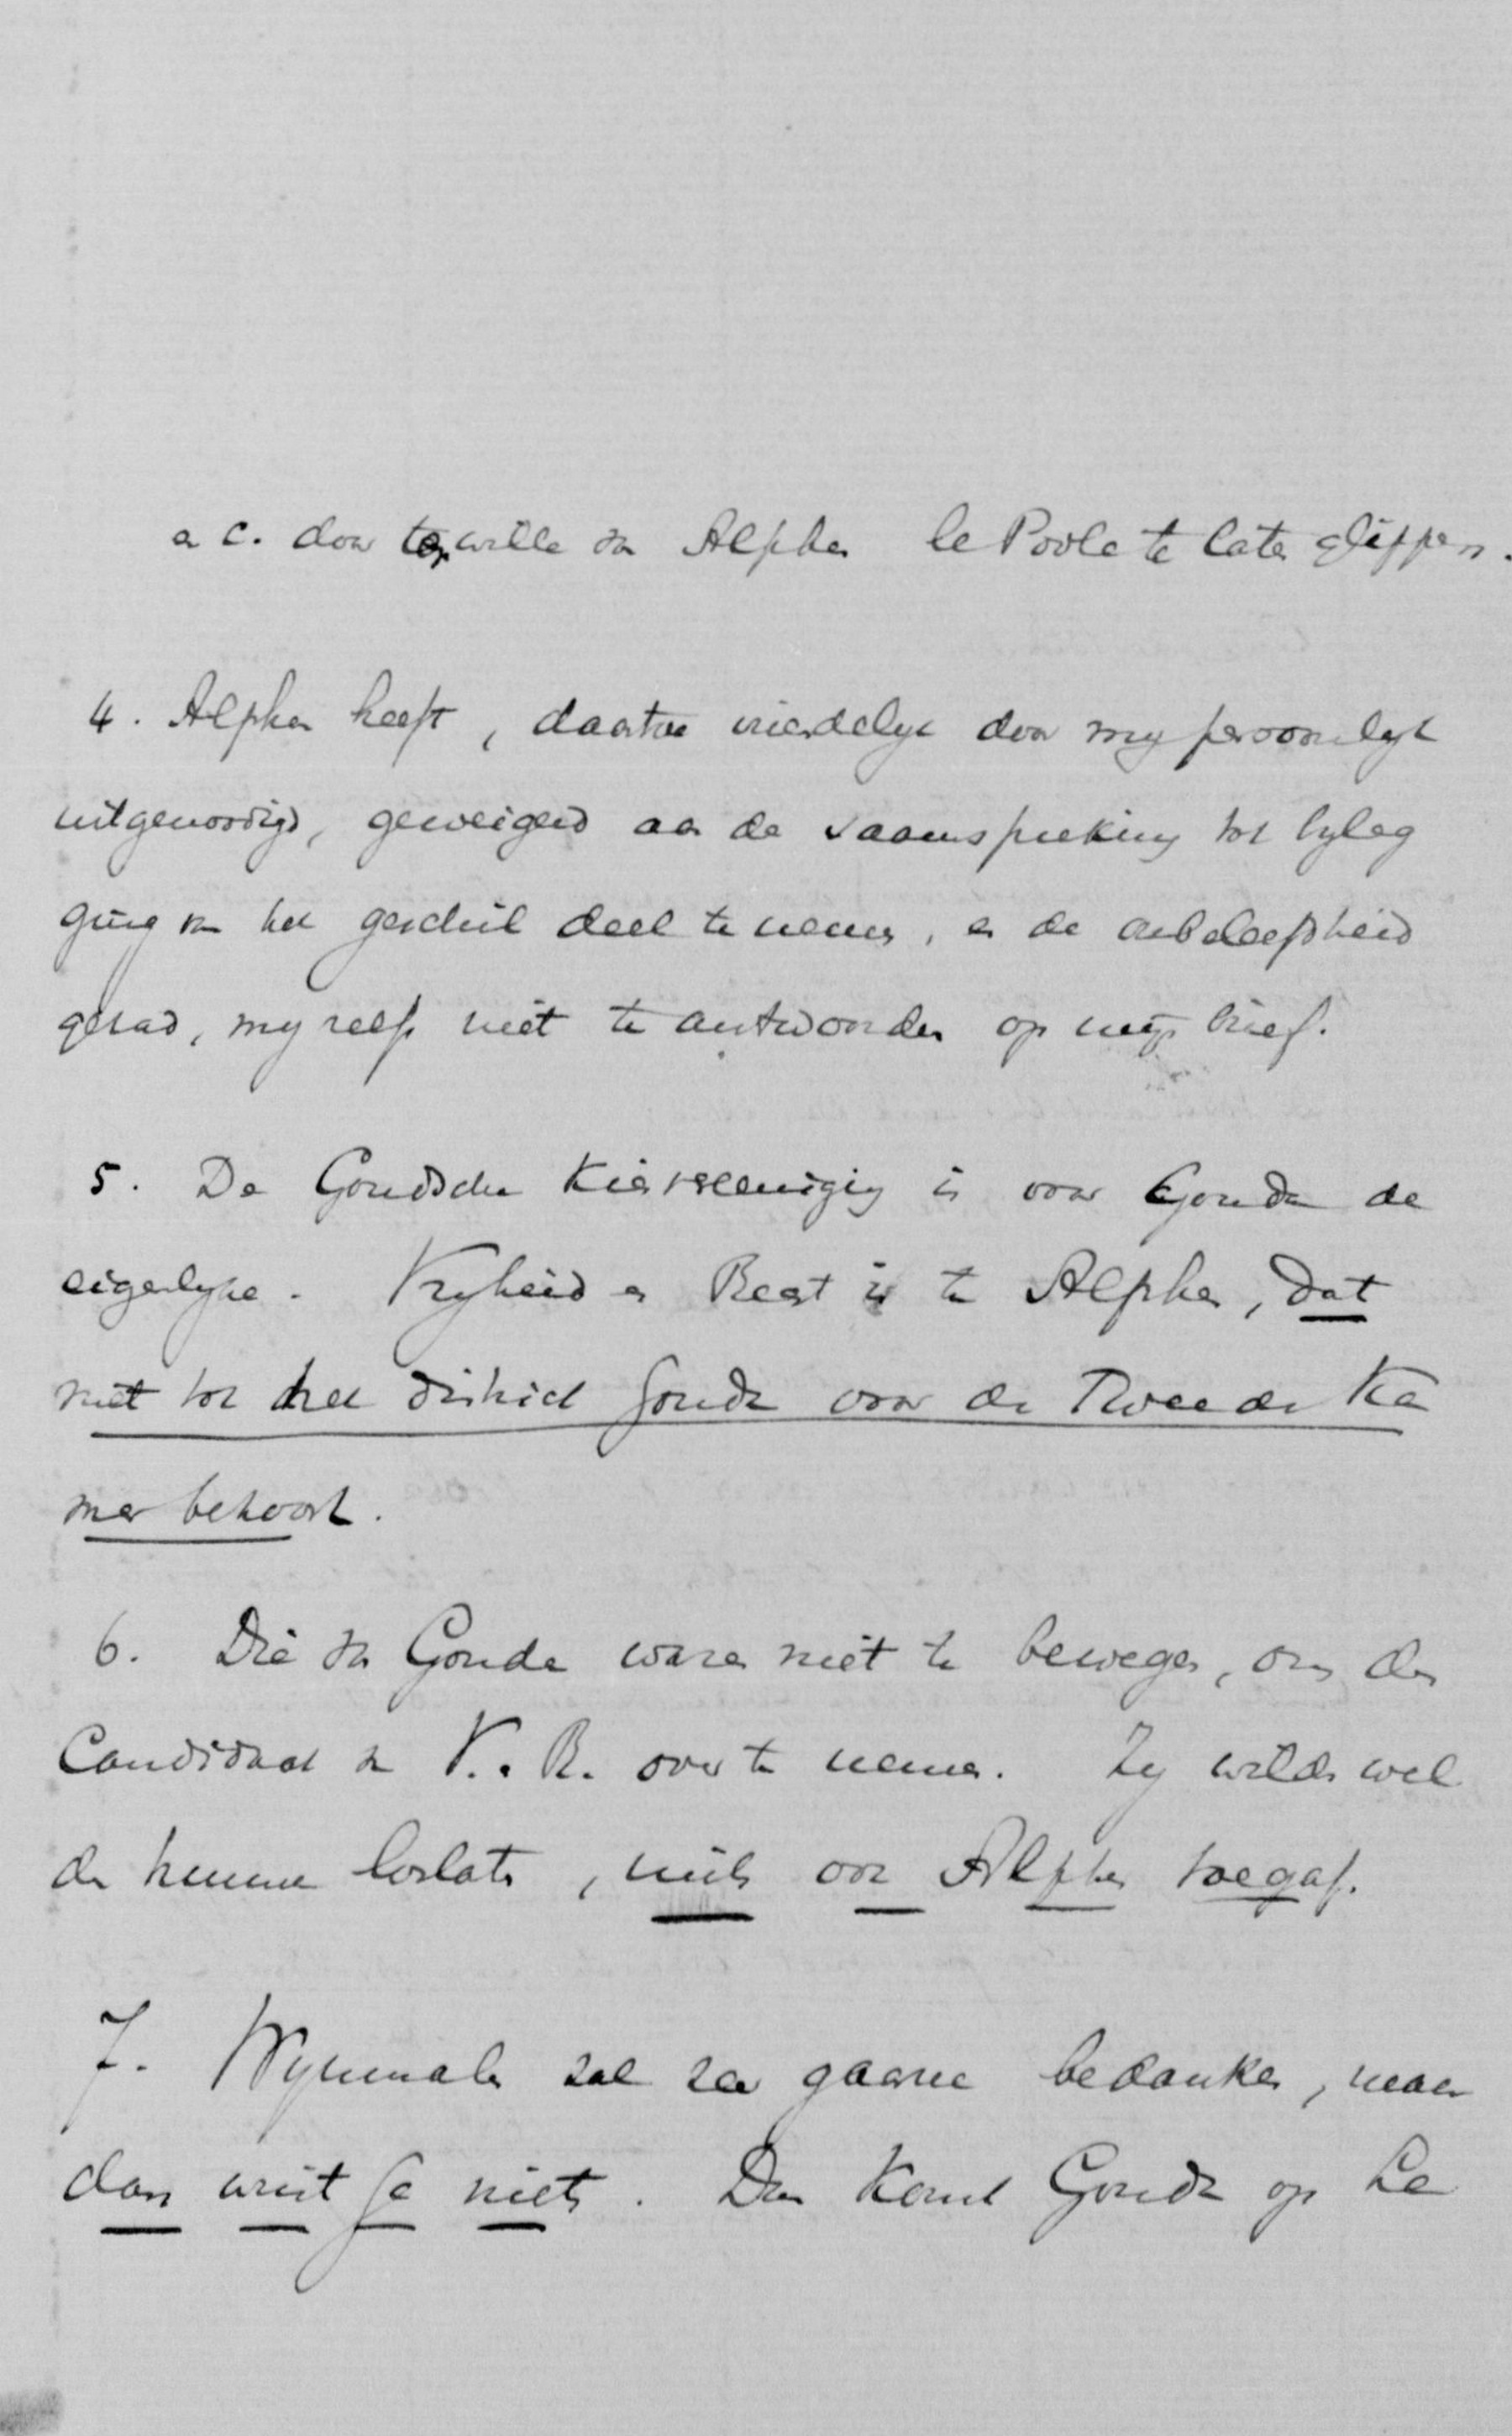 en c. door ter wille van Alphen le Poole te laten glippen.
4. Alphen heeft, daartoe vriendelyk door my persoonlyk
uitgenoodigd, geweigerd aan de saamspreking tot byleg
ging van het geschil deel te nemen, en de onbeleefdheid
gehad, my zelfs niet te antwoorden op myn brief.
5. De Goudsche Kiesvereeniging is voor Gouda de
eigenlyke. Vryheid en Recht is te Alphen, dat
niet tot het district Gouda voor de Tweede Ka
mer behoort.
6. Die van Gouda waren niet te bewegen, om den
Candidaat van V. e. R. over te nemen. Zy wilden wel
den hunnen loslaten, mits ook Alphen toegaf.
7. Wynmalen zal zeer gaarne bedanken, maar
dan wint ge niets. Dan komt Gouda op Le